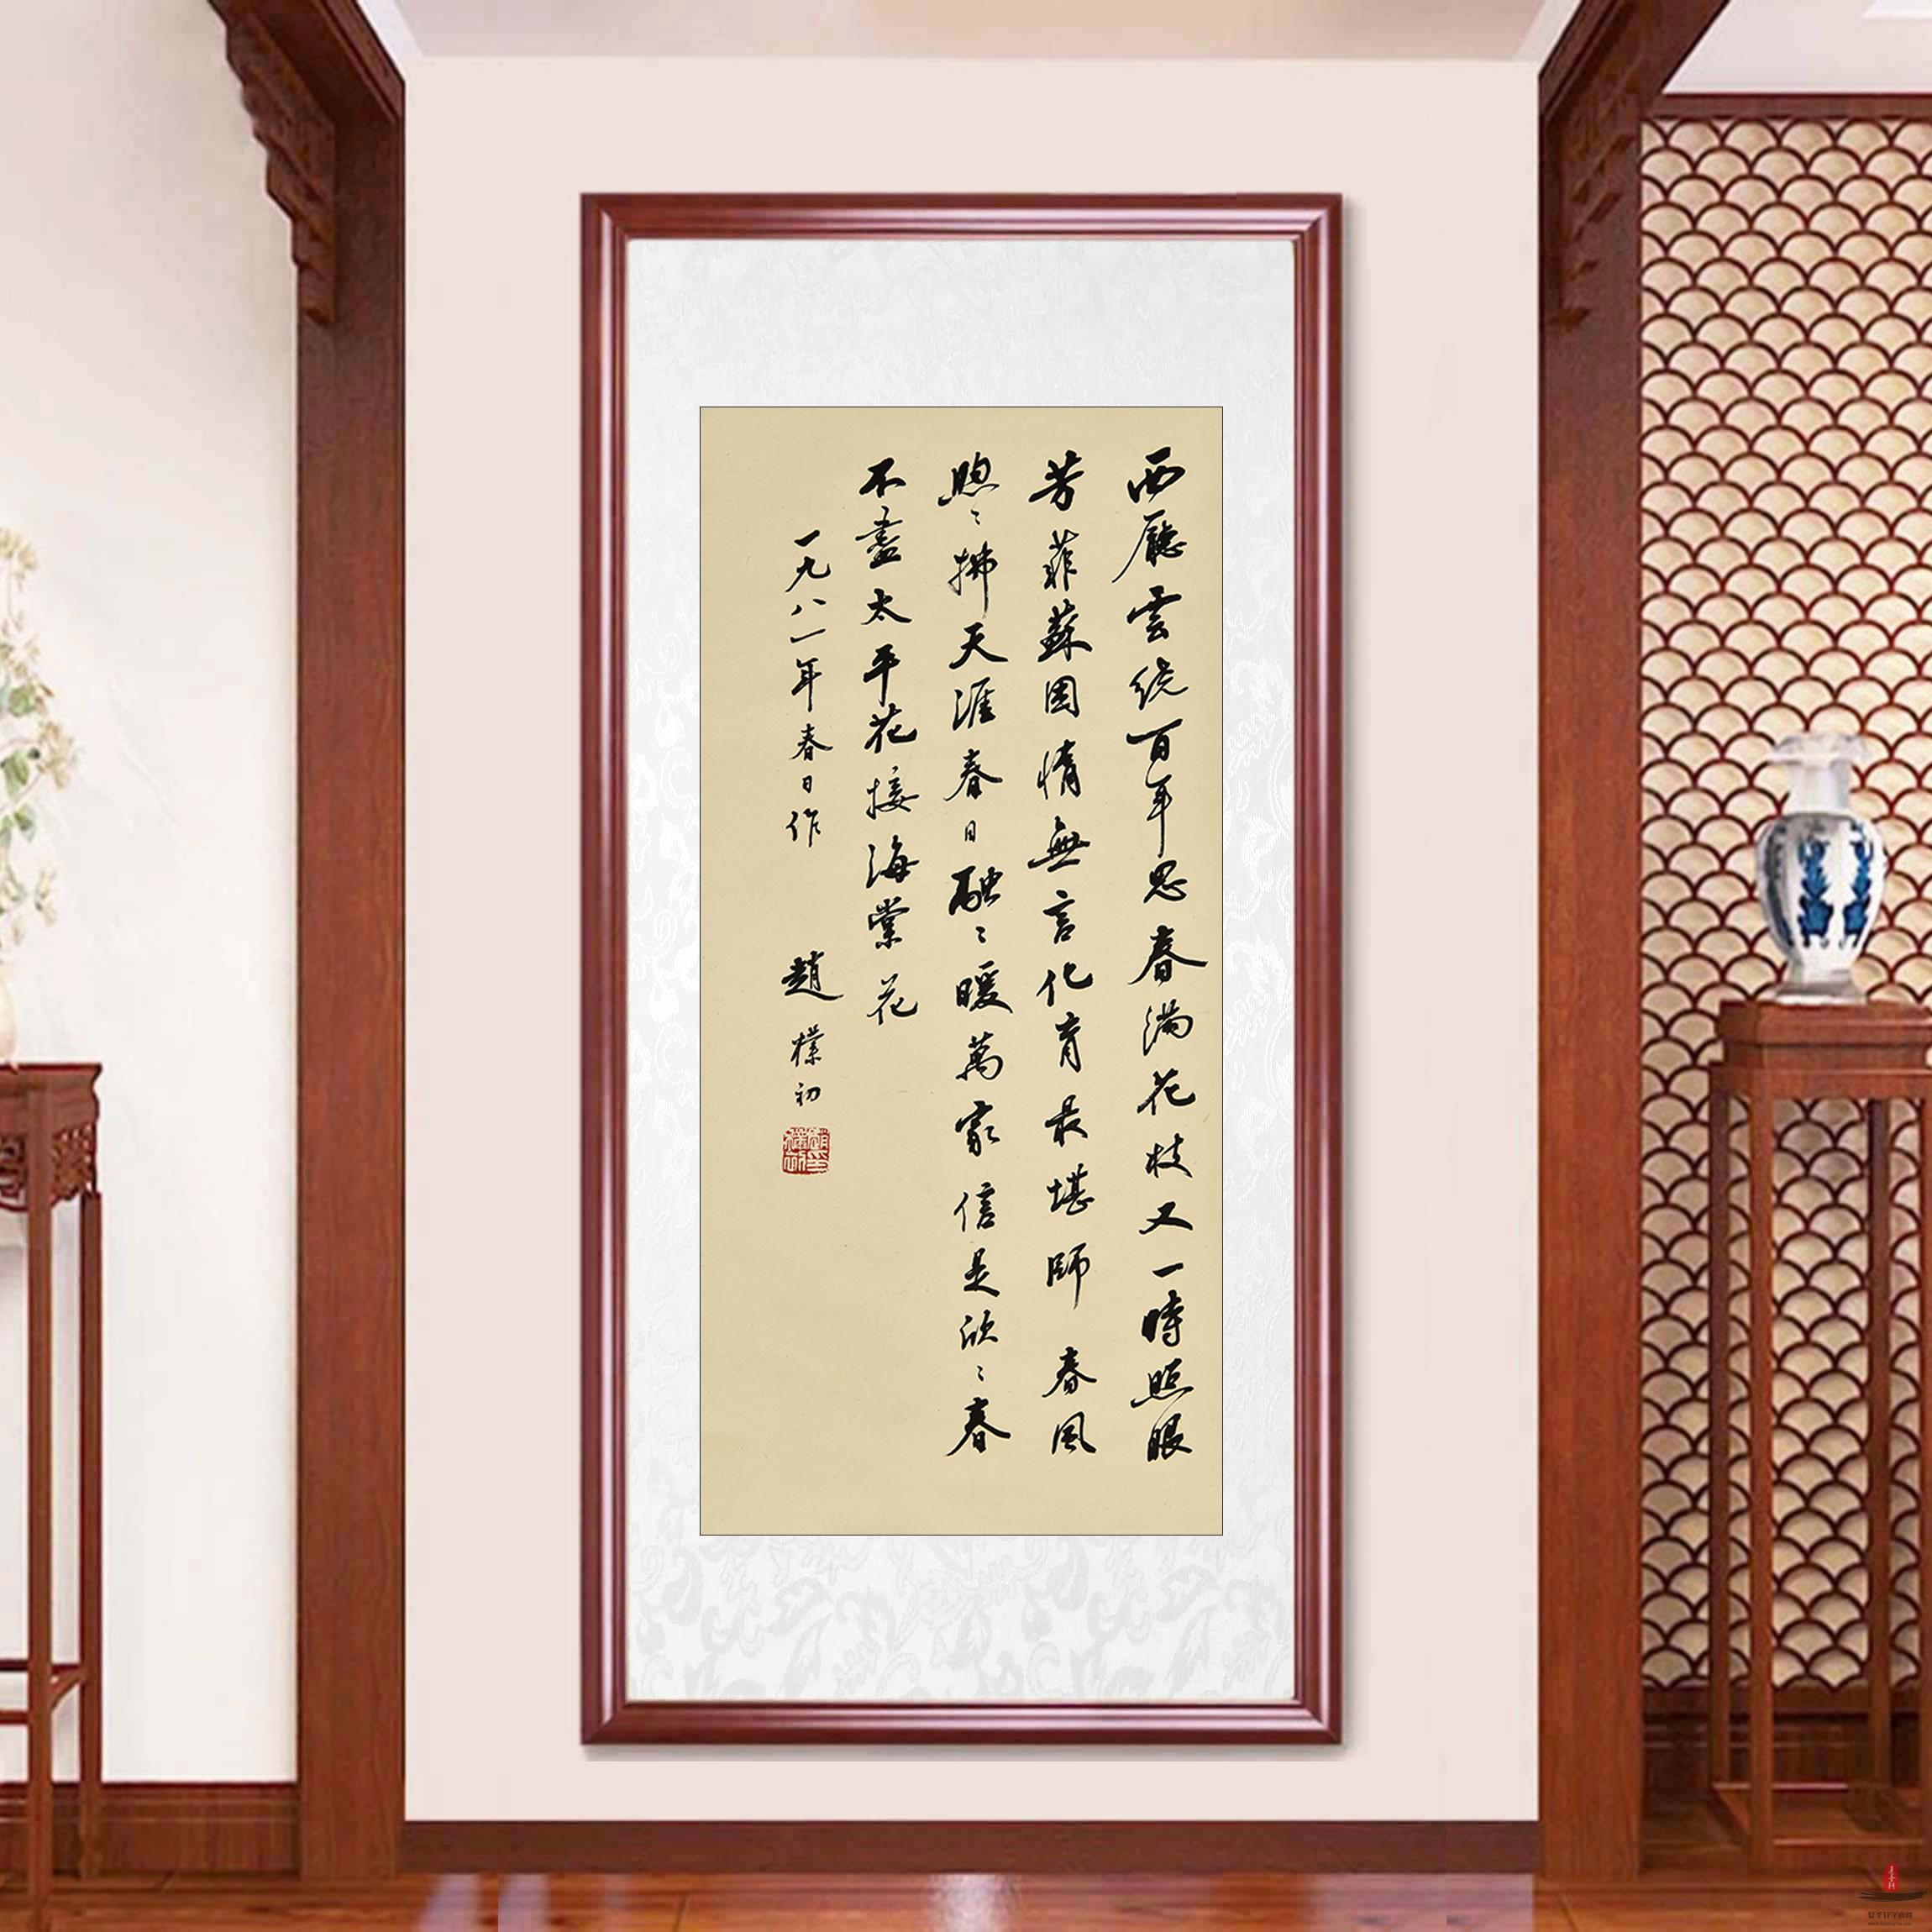 西廳雲绕百年思春满花枝又一時照眼
芳菲蘇困情無言化育最堪師 春風
煦〻拂天涯春日融〻暖萬家信是欣〻春
不盡太平花接海棠花
一九八一年春日作 趙樸初